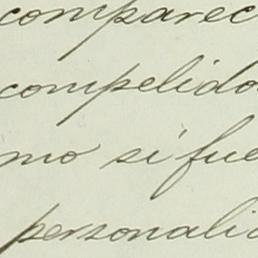 comparec
compelido
mo si fue
personalid